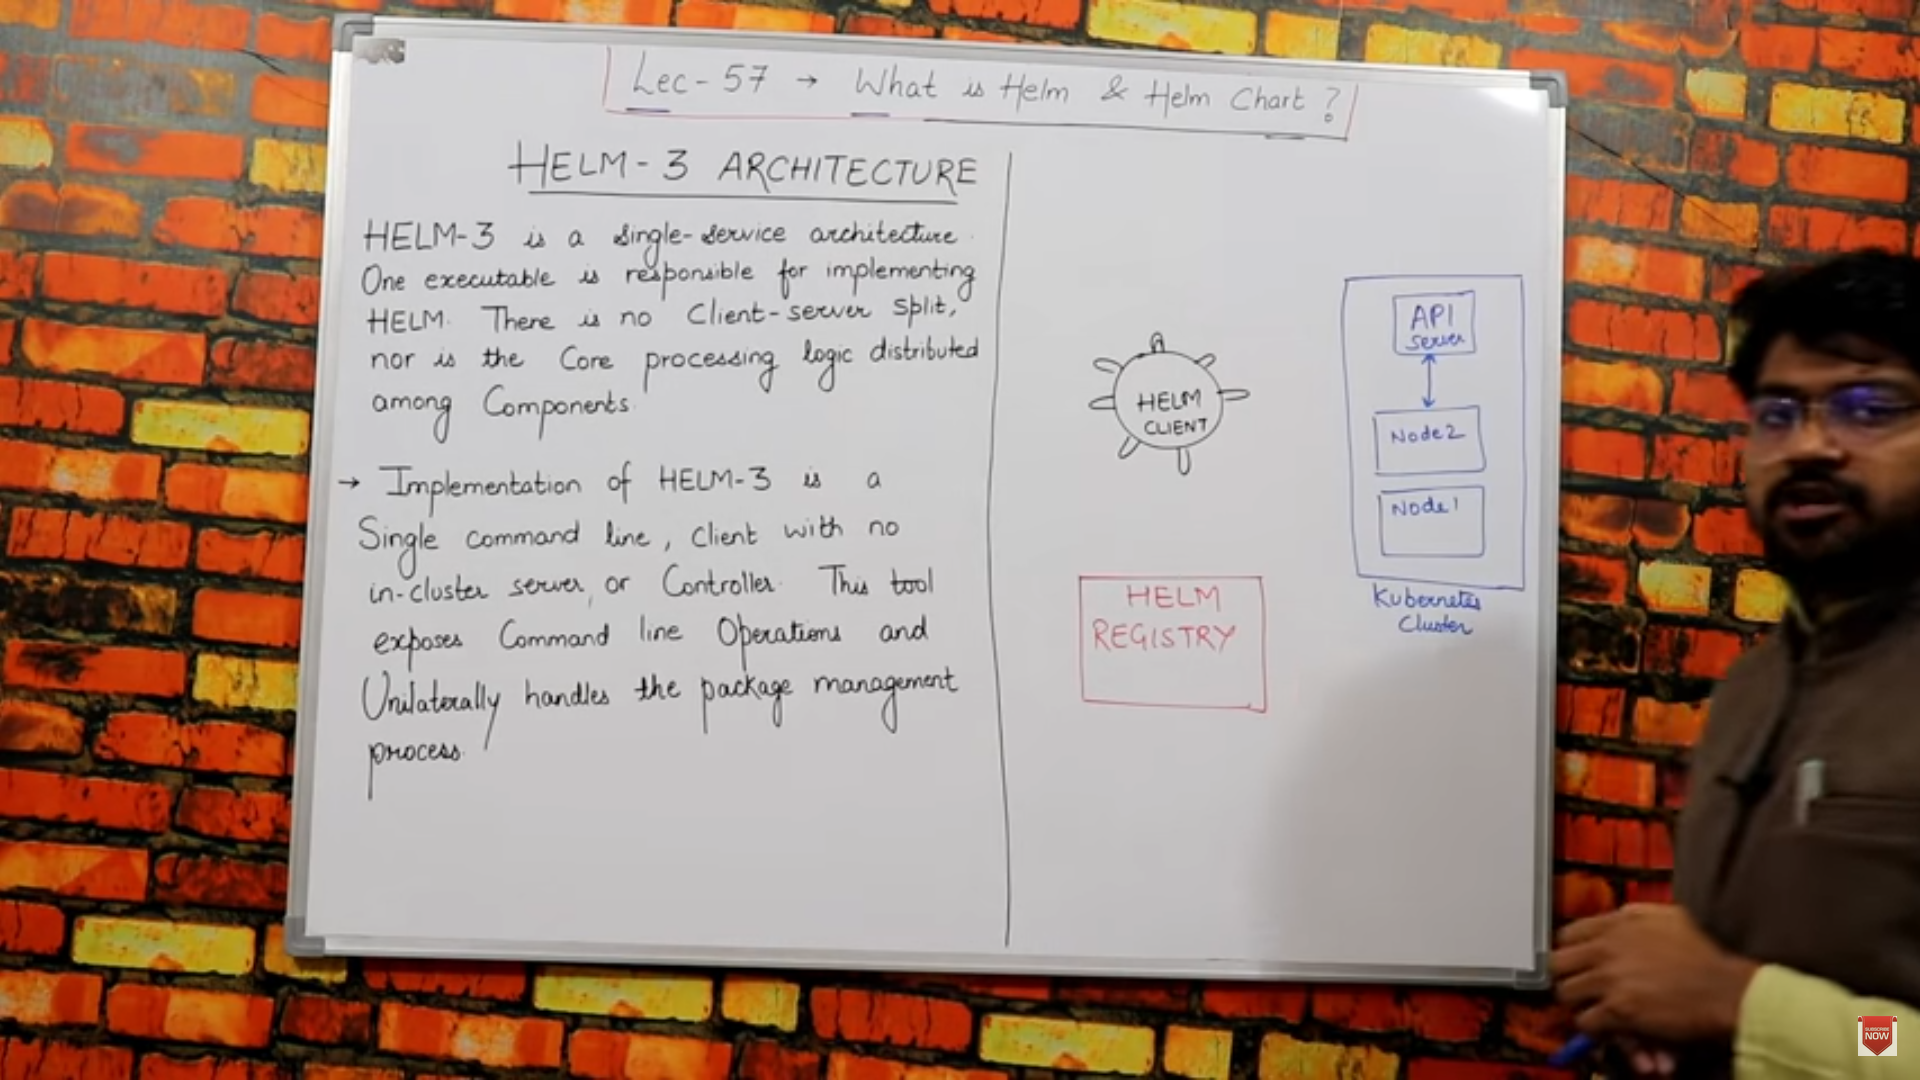 Lec-57 → What is Helm & Helm Chart ?
HELM-3 ARCHITECTURE
HELM-3 is a single-service architecture.
One executable is responsible for implementing
HELM. There is no Client-server split,
nor is the Core processing logic distributed
among Components.
→ Implementation of HELM-3 is a
Single command line, Client with no
in-cluster server, or Controller. This tool
exposes Command line Operations and
Unilaterally handles the package management
process.
HELM
CLIENT
API
Server
Node2
Node1
Kubernetes
Cluster
HELM
REGISTRY
SUBSCRIBE
NOW